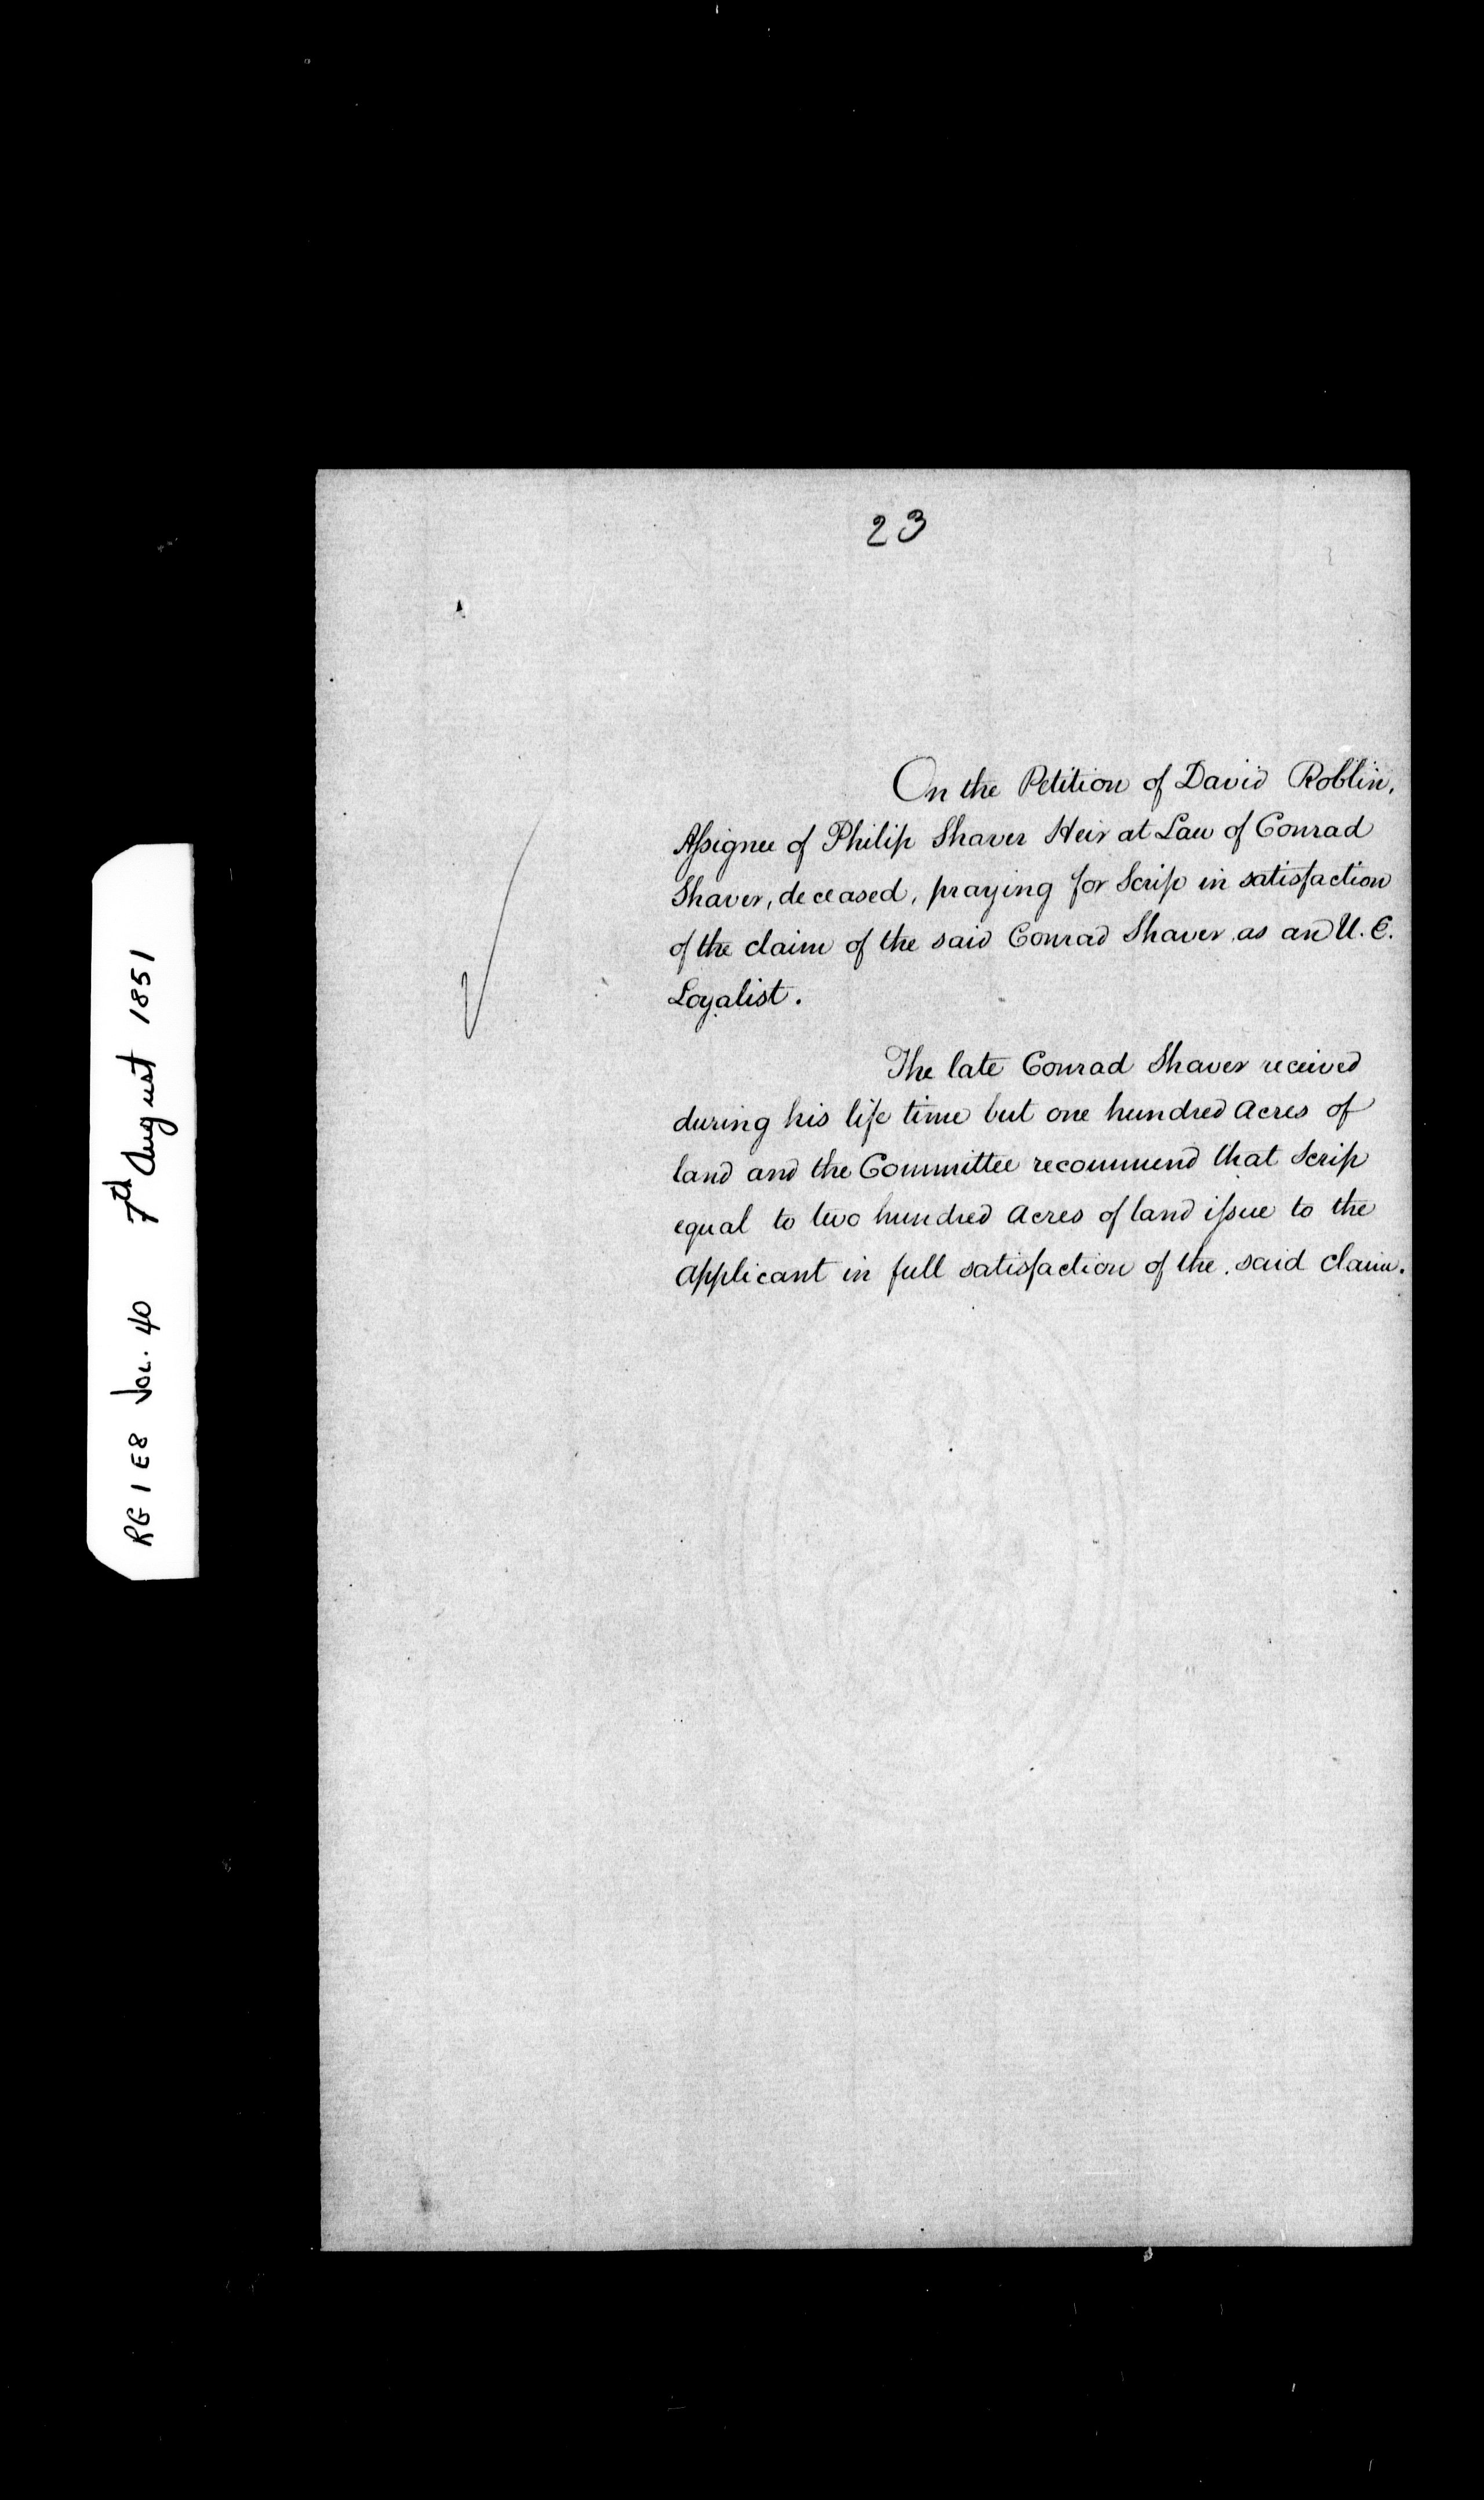 23
On the Petition of David Roblin,
Assignee of Philip Shaver Heir at Law of Conrad
Shaver, deceased, praying for Scrip in satisfaction
of the claim of the said Conrad Shaver as an U. E.
Loyalist.
The late Conrad Shaver received
during his life time but one hundred Acres of
land and the Committee recommend that Scrip
equal to two hundred Acres of land issue to the
applicant in full satisfaction of the said claim.
RG 1 E8 Vol. 40 7th August 1851